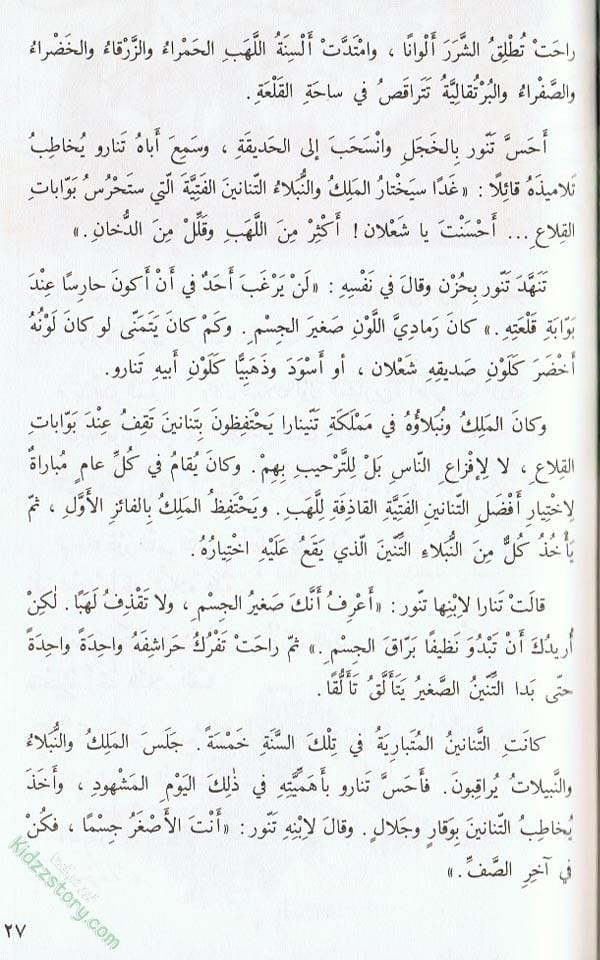 راحَتْ تُطْلِقُ الشَّرَرَ أَلْوانًا ، وامْتَدَّتْ أَلْسِنَةُ اللَّهَبِ الحَمْراءُ والزَّرْقاءُ والخَضْراءُ
والصَّفْراءُ والبُرْتُقاليَّةُ تَتَراقَصُ في ساحَةِ القَلْعَةِ.
أَحَسَّ تَنّور بِالخَجَلِ وانْسَحَبَ إلى الحَديقَةِ ، وسَمِعَ أَباهُ تَنارو يُخاطِبُ
تَلاميذَهُ قائِلًا : «غَدًا سَيَخْتارُ المَلِكُ والنُّبَلاءُ التَّنانينَ الفَتِيَّةَ الَّتي ستَحْرُسُ بَوّاباتِ
القِلاعِ... أَحْسَنْتَ يا شَعْلان! أَكْثِرْ مِنَ اللَّهَبِ وقَلِّلْ مِنَ الدُّخانِ.»
تَنَهَّدَ تَنّور بِحُزْنٍ وقالَ في نَفْسِهِ : «لَنْ يَرْغَبَ أَحَدٌ في أَنْ أَكونَ حارِسًا عِنْدَ
بَوّابَةِ قَلْعَتِهِ.» كانَ رَمادِيَّ اللَّوْنِ صَغيرَ الجِسْمِ. وكَمْ كانَ يَتَمَنّى لو كانَ لَوْنُهُ
أَخْضَرَ كَلَوْنِ صَديقِهِ شَعْلان ، أو أَسْوَدَ وذَهَبِيًّا كَلَوْنِ أَبيهِ تَنارو.
وكانَ المَلِكُ ونُبَلاؤُهُ في مَمْلَكَةِ تِنّينارا يَحْتَفِظونَ بِتَنانينَ تَقِفُ عِنْدَ بَوّاباتِ
القِلاعِ ، لا لِإفْزاعِ النّاسِ بَلْ لِلتَّرْحيبِ بِهِمْ. وكانَ يُقامُ في كُلِّ عامٍ مُباراةٌ
لِاخْتِيارِ أَفْضَلِ التَّنانينِ الفَتِيَّةِ القاذِفَةِ لِلَّهَبِ. ويَحْتَفِظُ المَلِكُ بِالفائِزِ الأَوَّلِ ، ثمّ
يَأْخُذُ كُلٌّ مِنَ النُّبَلاءِ التِّنّينَ الَّذي يَقَعُ عَلَيْهِ اخْتِيارُهُ.
قالَتْ تَنارا لِابْنِها تَنّور : «أَعْرِفُ أَنَّكَ صَغيرُ الجِسْمِ ، ولا تَقْذِفُ لَهَبًا. لٰكِنْ
أُريدُكَ أَنْ تَبْدُوَ نَظيفًا بَرّاقَ الجِسْمِ.» ثمّ راحَتْ تَفْرُكُ حَراشِفَهُ واحِدَةً واحِدَةً
حتّى بَدا التِّنّينُ الصَّغيرُ يَتَأَلَّقُ تَأَلُّقًا.
كانَتِ التَّنانينُ المُتَبارِيَةُ في تِلْكَ السَّنَةِ خَمْسَةً. جَلَسَ المَلِكُ والنُّبَلاءُ
والنَّبيلاتُ يُراقِبونَ. فَأَحَسَّ تَنارو بِأَهَمِّيَّتِهِ في ذٰلِكَ اليَوْمِ المَشْهودِ ، وأَخَذَ
يُخاطِبُ التَّنانينَ بِوَقارٍ وجَلالٍ. وقالَ لِابْنِهِ تَنّور: «أَنْتَ الأَصْغَرُ جِسْمًا ، فَكُنْ
في آخِرِ الصَّفِّ.»
Kidzzstory.com
٢٧